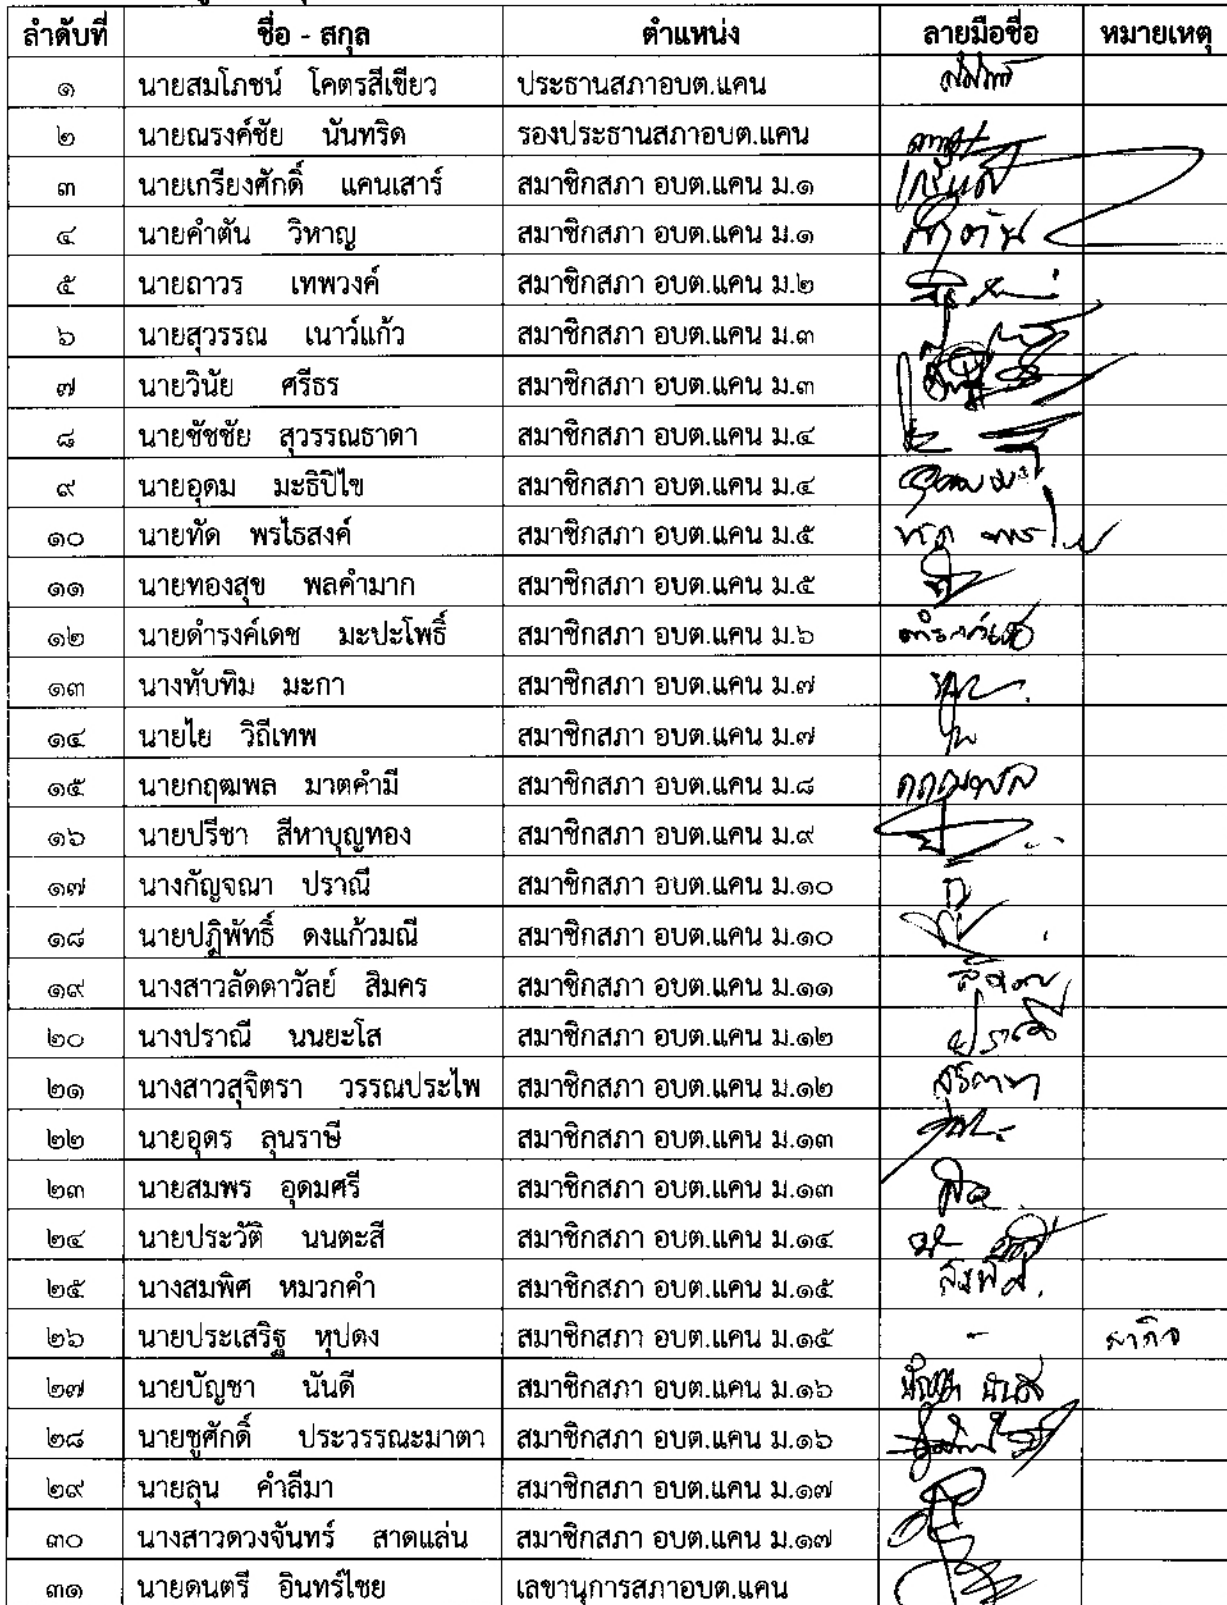 ลำดับที่ ชื่อ - สกุล ตำแหน่ง ลายมือชื่อ หมายเหตุ
๑ นายสมโภชน์ โคตรสีเขียว ประธานสภาอบต.แคน
๒ นายณรงค์ชัย นันทริด รองประธานสภาอบต.แคน
๓ นายเกรียงศักดิ์ แคนเสาร์ สมาชิกสภา อบต.แคน ม.๑
๔ นายคำตัน วิหาญ สมาชิกสภา อบต.แคน ม.๑ คำตัน
๕ นายถาวร เทพวงค์ สมาชิกสภา อบต.แคน ม.๒
๖ นายสุวรรณ เนาว์แก้ว สมาชิกสภา อบต.แคน ม.๓
๗ นายวินัย ศรีธร สมาชิกสภา อบต.แคน ม.๓
๘ นายชัชชัย สุวรรณธาดา สมาชิกสภา อบต.แคน ม.๔
๙ นายอุดม มะธิปิไข สมาชิกสภา อบต.แคน ม.๔
๑๐ นายทัด พรไธสงค์ สมาชิกสภา อบต.แคน ม.๕
๑๑ นายทองสุข พลคำมาก สมาชิกสภา อบต.แคน ม.๕
๑๒ นายดำรงค์เดช มะปะโพธิ์ สมาชิกสภา อบต.แคน ม.๖ ดำรงค์เดช
๑๓ นางทับทิม มะกา สมาชิกสภา อบต.แคน ม.๗
๑๔ นายไย วิถีเทพ สมาชิกสภา อบต.แคน ม.๗
๑๕ นายกฤฒพล มาตคำมี สมาชิกสภา อบต.แคน ม.๘ กฤฒพล
๑๖ นายปรีชา สีหาบุญทอง สมาชิกสภา อบต.แคน ม.๙
๑๗ นางกัญจณา ปราณี สมาชิกสภา อบต.แคน ม.๑๐
๑๘ นายปฎิพัทธิ์ ดงแก้วมณี สมาชิกสภา อบต.แคน ม.๑๐
๑๙ นางสาวลัดดาวัลย์ สิมคร สมาชิกสภา อบต.แคน ม.๑๑
๒๐ นางปราณี นนยะโส สมาชิกสภา อบต.แคน ม.๑๒ ปราณี
๒๑ นางสาวสุจิตรา วรรณประไพ สมาชิกสภา อบต.แคน ม.๑๒
๒๒ นายอุดร ลุนราษี สมาชิกสภา อบต.แคน ม.๑๓
๒๓ นายสมพร อุดมศรี สมาชิกสภา อบต.แคน ม.๑๓
๒๔ นายประวัติ นนตะสี สมาชิกสภา อบต.แคน ม.๑๔
๒๕ นางสมพิศ หมวกคำ สมาชิกสภา อบต.แคน ม.๑๕ สมพิศ
๒๖ นายประเสริฐ หุปดง สมาชิกสภา อบต.แคน ม.๑๕ - ลากิจ
๒๗ นายบัญชา นันดี สมาชิกสภา อบต.แคน ม.๑๖ บัญชา นันดี
๒๘ นายชูศักดิ์ ประวรรณะมาตา สมาชิกสภา อบต.แคน ม.๑๖
๒๙ นายลุน คำลีมา สมาชิกสภา อบต.แคน ม.๑๗
๓๐ นางสาวดวงจันทร์ สาดแล่น สมาชิกสภา อบต.แคน ม.๑๗
๓๑ นายดนตรี อินทร์ไชย เลขานุการสภาอบต.แคน